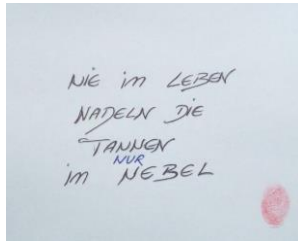 NIE im LEBEN
NADELN DIE
TANNEN
NUR
im NEBEL